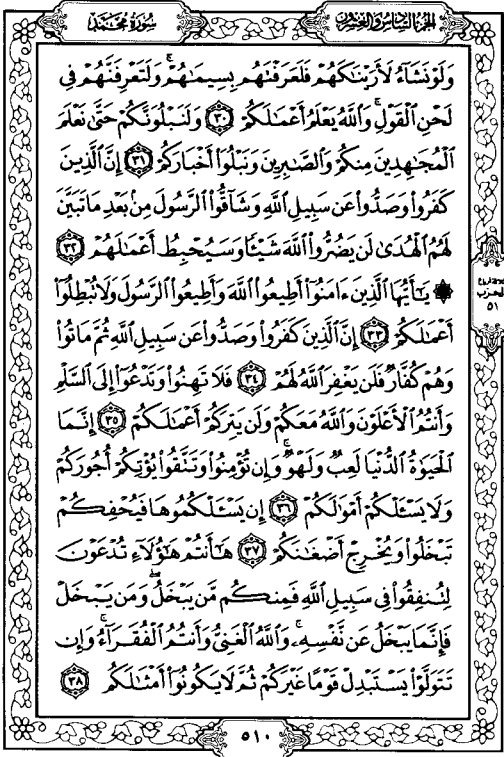 الجزء السادس والعشرون
سورة محمد
وَلَوْ نَشَآءُ لَأَرَيْنَٰكَهُمْ فَلَعَرَفْتَهُم بِسِيمَٰهُمْ ۚ وَلَتَعْرِفَنَّهُمْ فِى
لَحْنِ ٱلْقَوْلِ ۚ وَٱللَّهُ يَعْلَمُ أَعْمَٰلَكُمْ ٣٠ وَلَنَبْلُوَنَّكُمْ حَتَّىٰ نَعْلَمَ
ٱلْمُجَٰهِدِينَ مِنكُمْ وَٱلصَّٰبِرِينَ وَنَبْلُوَا۟ أَخْبَارَكُمْ ٣١ إِنَّ ٱلَّذِينَ
كَفَرُوا۟ وَصَدُّوا۟ عَن سَبِيلِ ٱللَّهِ وَشَآقُّوا۟ ٱلرَّسُولَ مِنۢ بَعْدِ مَا تَبَيَّنَ
لَهُمُ ٱلْهُدَىٰ لَن يَضُرُّوا۟ ٱللَّهَ شَيْـًٔا وَسَيُحْبِطُ أَعْمَٰلَهُمْ ٣٢
۞ يَٰٓأَيُّهَا ٱلَّذِينَ ءَامَنُوٓا۟ أَطِيعُوا۟ ٱللَّهَ وَأَطِيعُوا۟ ٱلرَّسُولَ وَلَا تُبْطِلُوٓا۟
أَعْمَٰلَكُمْ ٣٣ إِنَّ ٱلَّذِينَ كَفَرُوا۟ وَصَدُّوا۟ عَن سَبِيلِ ٱللَّهِ ثُمَّ مَاتُوا۟
وَهُمْ كُفَّارٌ فَلَن يَغْفِرَ ٱللَّهُ لَهُمْ ٣٤ فَلَا تَهِنُوا۟ وَتَدْعُوٓا۟ إِلَى ٱلسَّلْمِ
وَأَنتُمُ ٱلْأَعْلَوْنَ وَٱللَّهُ مَعَكُمْ وَلَن يَتِرَكُمْ أَعْمَٰلَكُمْ ٣٥ إِنَّمَا
ٱلْحَيَوٰةُ ٱلدُّنْيَا لَعِبٌ وَلَهْوٌ ۚ وَإِن تُؤْمِنُوا۟ وَتَتَّقُوا۟ يُؤْتِكُمْ أُجُورَكُمْ
وَلَا يَسْـَٔلْكُمْ أَمْوَٰلَكُمْ ٣٦ إِن يَسْـَٔلْكُمُوهَا فَيُحْفِكُمْ
تَبْخَلُوا۟ وَيُخْرِجْ أَضْغَٰنَكُمْ ٣٧ هَٰٓأَنتُمْ هَٰٓؤُلَآءِ تُدْعَوْنَ
لِتُنفِقُوا۟ فِى سَبِيلِ ٱللَّهِ فَمِنكُم مَّن يَبْخَلُ ۖ وَمَن يَبْخَلْ
فَإِنَّمَا يَبْخَلُ عَن نَّفْسِهِۦ ۚ وَٱللَّهُ ٱلْغَنِىُّ وَأَنتُمُ ٱلْفُقَرَآءُ ۚ وَإِن
تَتَوَلَّوْا۟ يَسْتَبْدِلْ قَوْمًا غَيْرَكُمْ ثُمَّ لَا يَكُونُوٓا۟ أَمْثَٰلَكُم ٣٨
الحزب
٥١
٥١٠